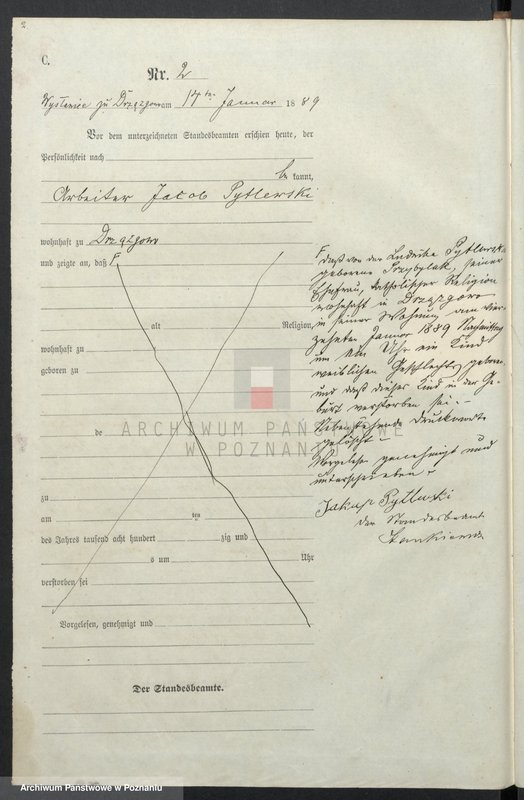 2.
C.
Nr. 2
zu Drzązgowo am 14ten Januar 1889
Vor dem unterzeichneten Standesbeamten erschien heute, der
Persönlichkeit nach
be kannt,
Arbeiter Jacob Pytlewski
wohnhaft zu Drzązgowo
und zeigte an, daß F
alt Religion,
wohnhaft zu
geboren zu
de
zu
am ten
des Jahres tausend acht hundert zig und
s um Uhr
verstorben sei
Vorgelesen, genehmigt und
Der Standesbeamte.
F daß von der Ludwika Pytlewska
geborene Przybylak, seiner
Ehefrau, katholischer Religion
wohnhaft in Drzązgowo
in seiner Wohnung am vier-
zehnten Januar 1889 Nachmittag
um ein Uhr ein Kind
weiblichen Geschlechts geboren
und daß dieses Kind in der Ge-
burt verstorben sei.
Nebenstehende Druckworte
gelöscht
Vorgelesen genehmigt und
unterschrieben
Jakup Pytlewski
der Standesbeamte
ARCHIWUM PAŃSTWOWE
W POZNANIU
Archiwum Państwowe w Poznaniu